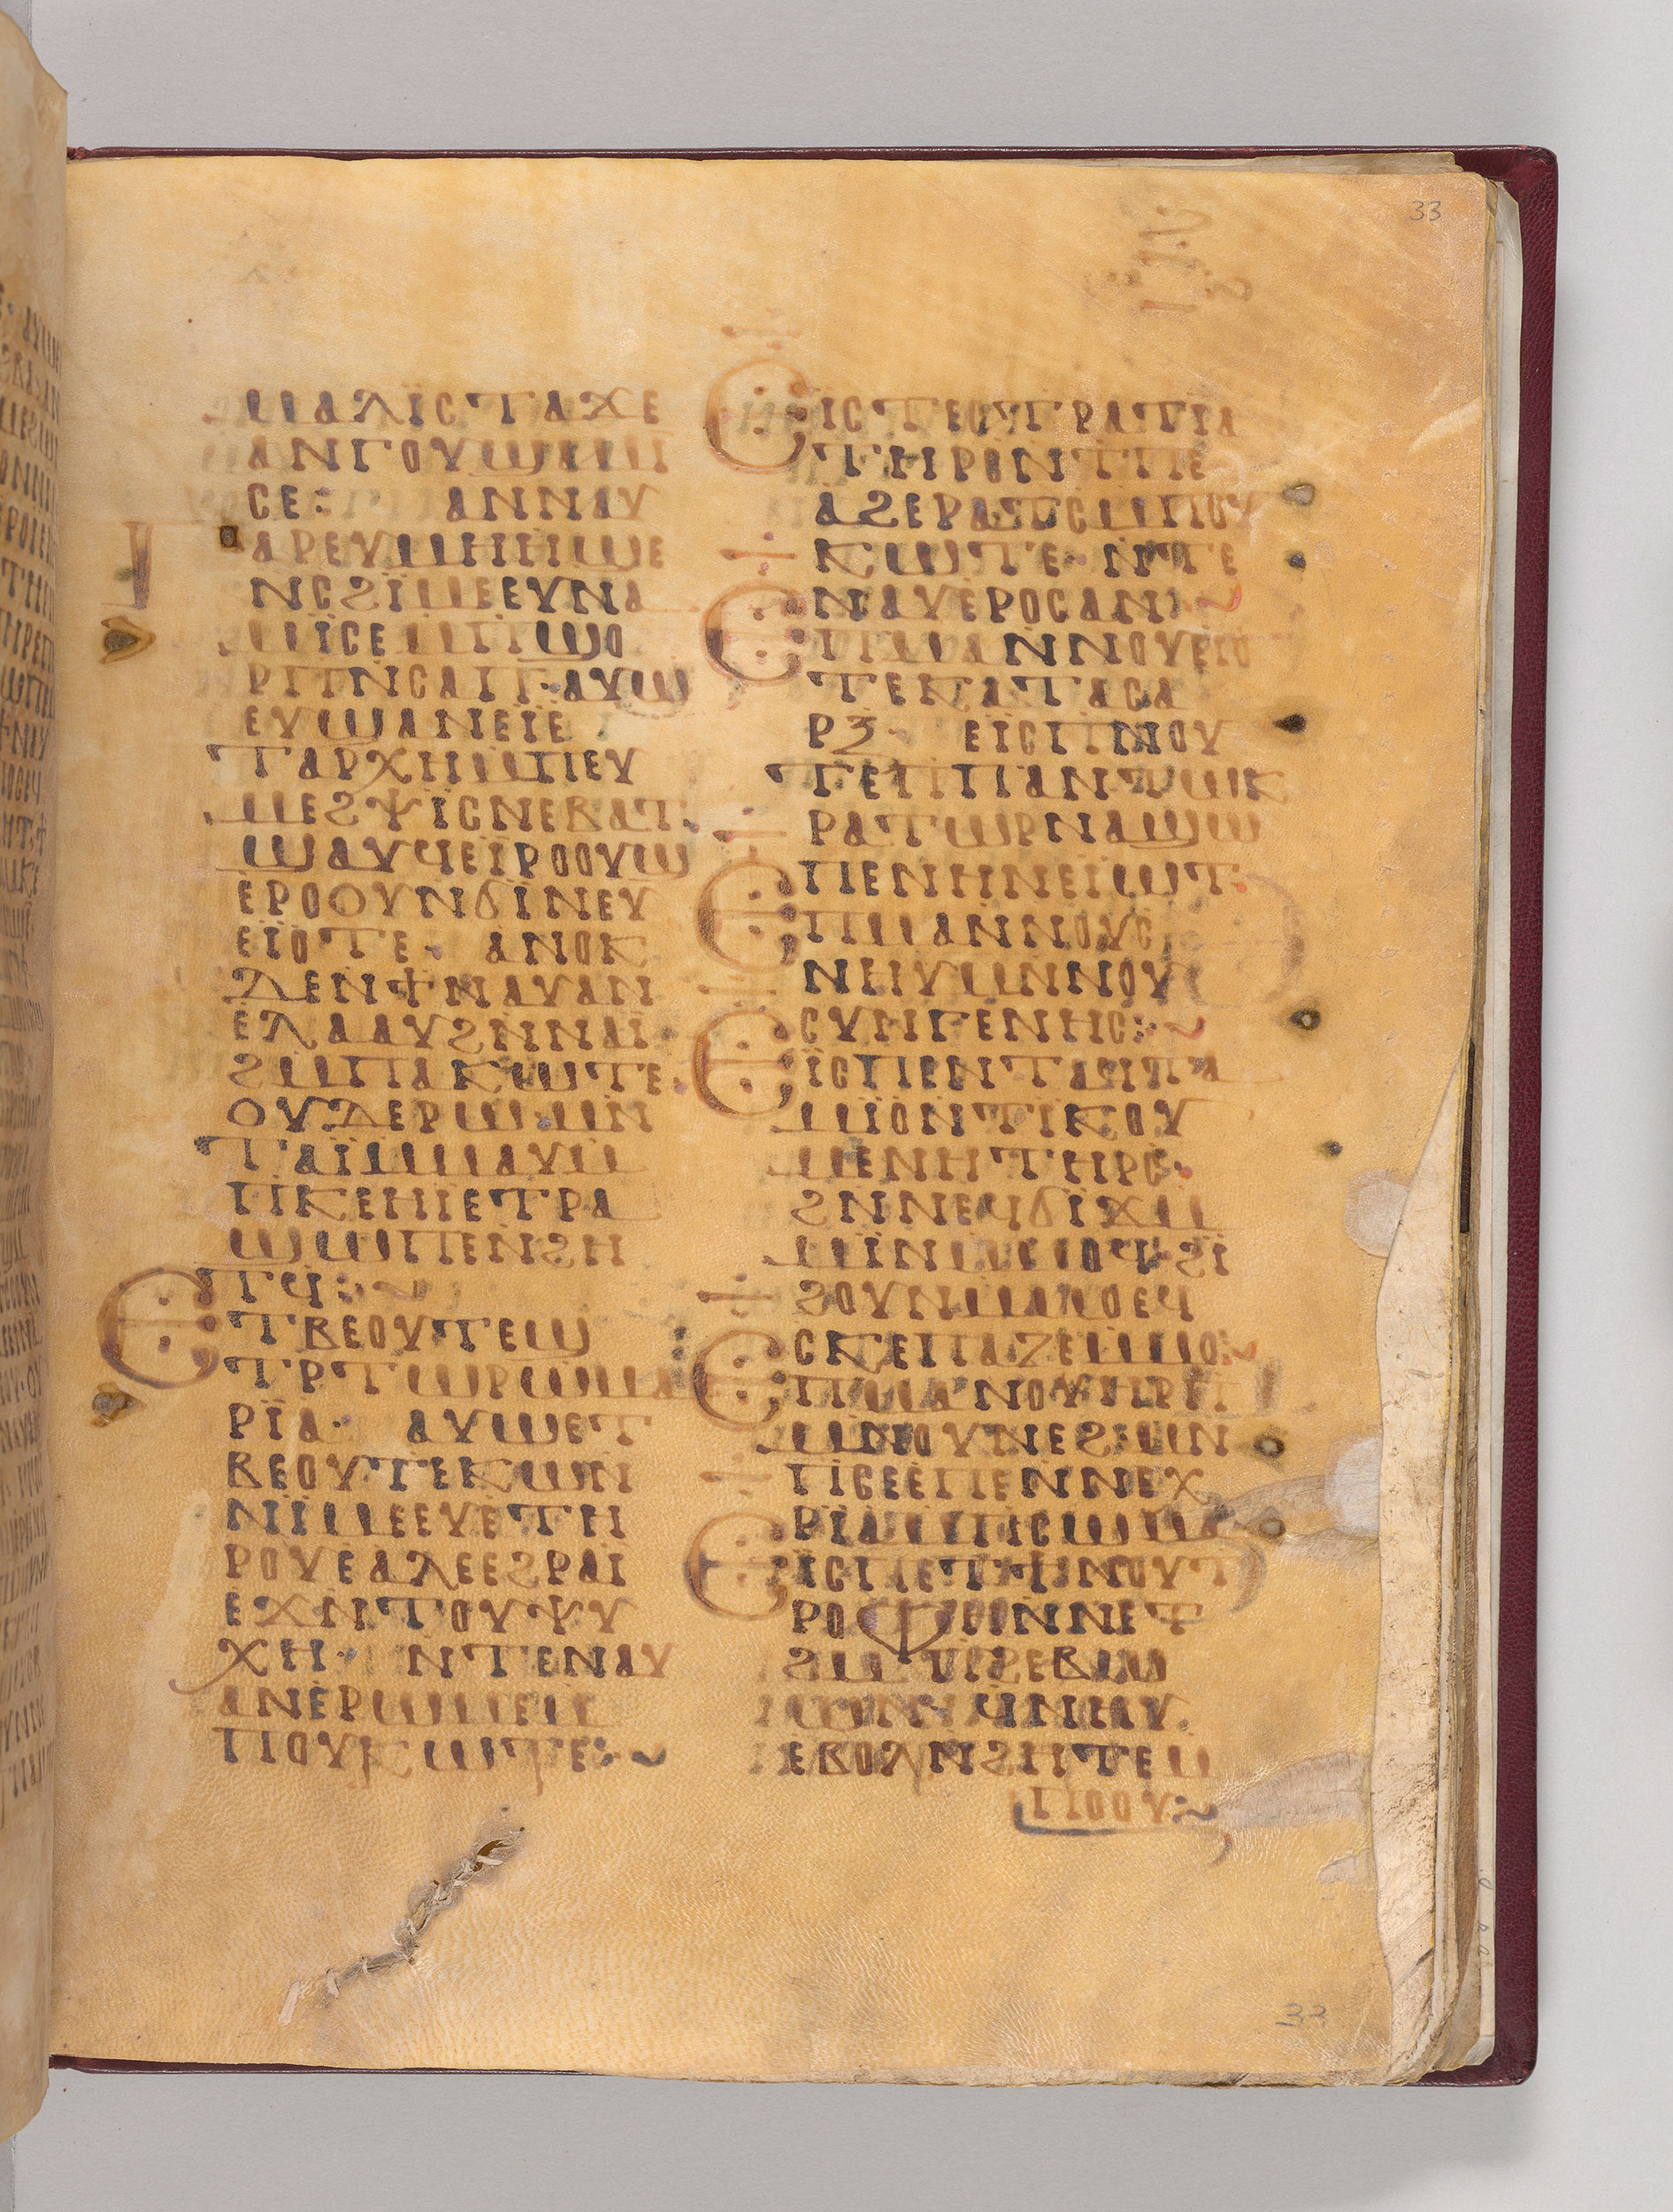 33
ⲙⲁⲗⲓⲥⲧⲁϫⲉ
ⲁⲛⲅⲟⲩϣⲙ
ⲥⲉ: ⲁⲛⲛⲁⲩ
ⲅⲁⲣⲉⲩⲙⲏⲏϣⲉ
ⲛⲥϩⲓⲙⲉⲉⲩⲛⲁ
ⲙⲓⲥⲉⲙⲡϣⲟ
ⲣⲡⲛⲥⲁⲡ· ⲁⲩⲱ
ⲉⲩϣⲁⲛⲉⲓⲉ
ⲧⲁⲣⲭⲏⲙⲡⲉⲩ
ⲙⲉϩⲯⲓⲥⲛⲉⲃⲁⲧ·
ϣⲁⲩϥⲉⲓⲣⲟⲟⲩϣ
ⲉⲣⲟⲟⲩⲛϭⲓⲛⲉⲩ
ⲉⲓⲟⲧⲉ· ⲁⲛⲟⲕ
ⲇⲉⲛϯⲛⲁⲩⲁⲛ
ⲉⲗⲁⲁⲩϩⲛⲛⲁⲓ
ϩⲙⲡⲁⲕⲱⲧⲉ·
ⲟⲩⲇⲉⲣⲱⲙⲛ
ⲧⲁⲓⲙⲙⲁⲩⲙ
ⲡⲕⲉⲙⲉⲧⲣⲁ
ϣⲱⲡⲉⲛϩⲏ
ⲧϥ:~
ⲉⲧⲃⲉⲟⲩⲧⲉϣ
ⲧⲣⲧⲱⲣⲱⲙⲁ
ⲣⲓⲁ· ⲁⲩⲱⲉⲧ
ⲃⲉⲟⲩⲧⲉⲕⲱⲛ
ⲛⲓⲙⲉⲉⲩⲉⲧⲏ
ⲣⲟⲩⲉⲁⲗⲉⲉϩⲣⲁⲓ
ⲉϫⲛⲧⲟⲩⲯⲩ
ⲭⲏ· ⲛⲧⲉⲛⲁⲩ
ⲁⲛⲉⲣⲱⲙⲉⲙ
ⲡⲟⲩⲕⲱⲧⲉ:~
ⲉⲓⲥⲧⲉⲟⲩⲧⲣⲁⲡⲓⲁ
ⲧⲏⲣⲟⲛⲧⲡⲉ
ⲁϩⲉⲣⲁⲧⲥⲙⲡⲟⲩ
ⲕⲱⲧⲉ· ⲛⲧⲉ
ⲛⲁⲩⲉⲣⲟⲥⲁⲛ:~
ⲉⲡⲙⲁⲛⲛⲟⲩⲉⲓⲟ
ⲧⲉⲕⲁⲧⲁⲥⲁ
ⲣⲝ· ⲉⲓⲥⲡⲛⲟⲩ
ⲧⲉⲡⲡⲁⲛⲧⲱⲕ
ⲣⲁⲧⲱⲣⲛⲁϣⲱ
ⲡⲉⲛⲏⲛⲉⲓⲱⲧ·
ⲉⲡⲙⲁⲛⲛⲟⲩⲥ
ⲛⲏⲩⲙⲛⲛⲟⲩ
ⲥⲩⲛⲅⲉⲛⲏⲥ:~
ⲉⲓⲥⲡⲉⲛⲧⲁϥⲧⲁ
ⲙⲓⲟⲛⲧⲓⲕⲟⲩ
ⲙⲉⲛⲏⲧⲏⲣⲥ·
ϩⲛⲛⲉϥϭⲓϫⲙ
ⲙⲓⲛⲙⲙⲟϥ· ϩⲓ
ϩⲟⲩⲛⲙⲙⲟⲉϥ
ⲥⲕⲉⲡⲁⲍⲉⲙⲙⲟ:~
ⲉⲡⲙⲁⲛⲟⲩⲏⲣⲡ
ⲙⲛⲟⲩⲛⲉϩⲉⲙⲛ
ⲡⲥⲉⲉⲡⲉⲛⲛⲉⲭ
ⲣⲓⲁⲙⲡⲥⲱⲙⲁ
ⲉⲓⲥⲡⲉⲧϯⲛⲟⲩⲧ
ⲣⲟⲫⲏⲛⲛⲉⲧ
ϩⲙⲡϩⲉⲃⲱ
ⲱⲛ· ϥⲛⲏⲩ
ⲉⲃⲟⲗⲛϩⲏⲧⲉⲙ
ⲡⲟⲟⲩ:~
33